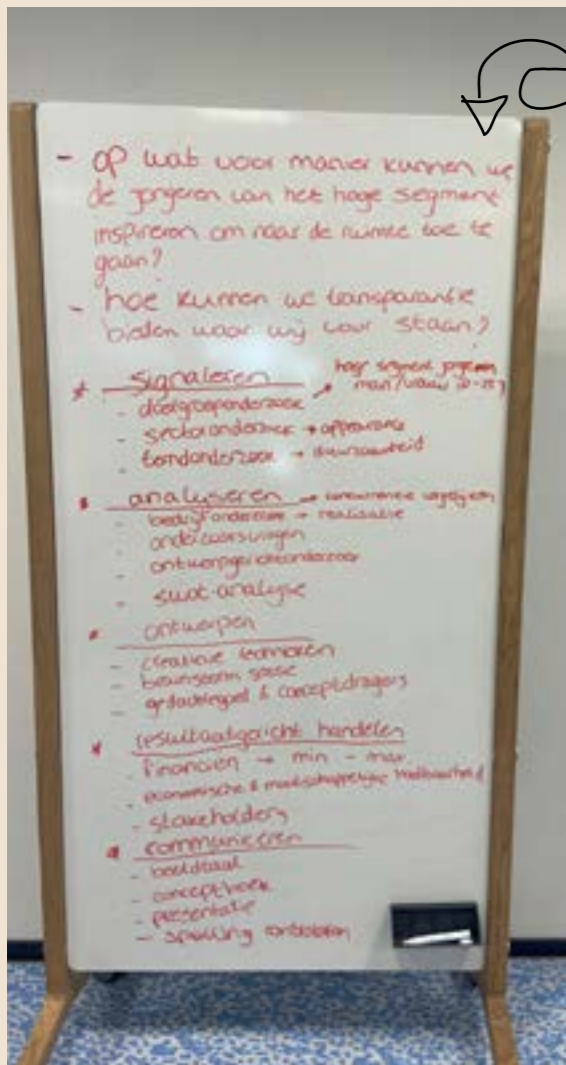 - op wat voor manier kunnen we
de jongeren van het hoge segment
inspireren om naar de ruimte toe te
gaan?
- hoe kunnen we transparantie
bieden waar wij voor staan?
* signaleren
hoge segment jongeren
man/vrouw 20-25j
- doelgroeponderzoek
- sectoronderzoek → appearance
- trendonderzoek → duurzaamheid
* analyseren → concurrentie
- bedrijfonderzoek → realisatie
- onderzoeksvragen
- ontwerpgerichtonderzoek
- swot-analyse
* ontwerpen
- creatieve technieken
- brainstorm sessie
- gedachtegoed & conceptdragers
* resultaatgericht handelen
- financiën → min - max
- economische & maatschappelijke haalbaarheid
- stakeholders
* communiceren
- beeldtaal
- conceptboek
- presentatie
- spelling